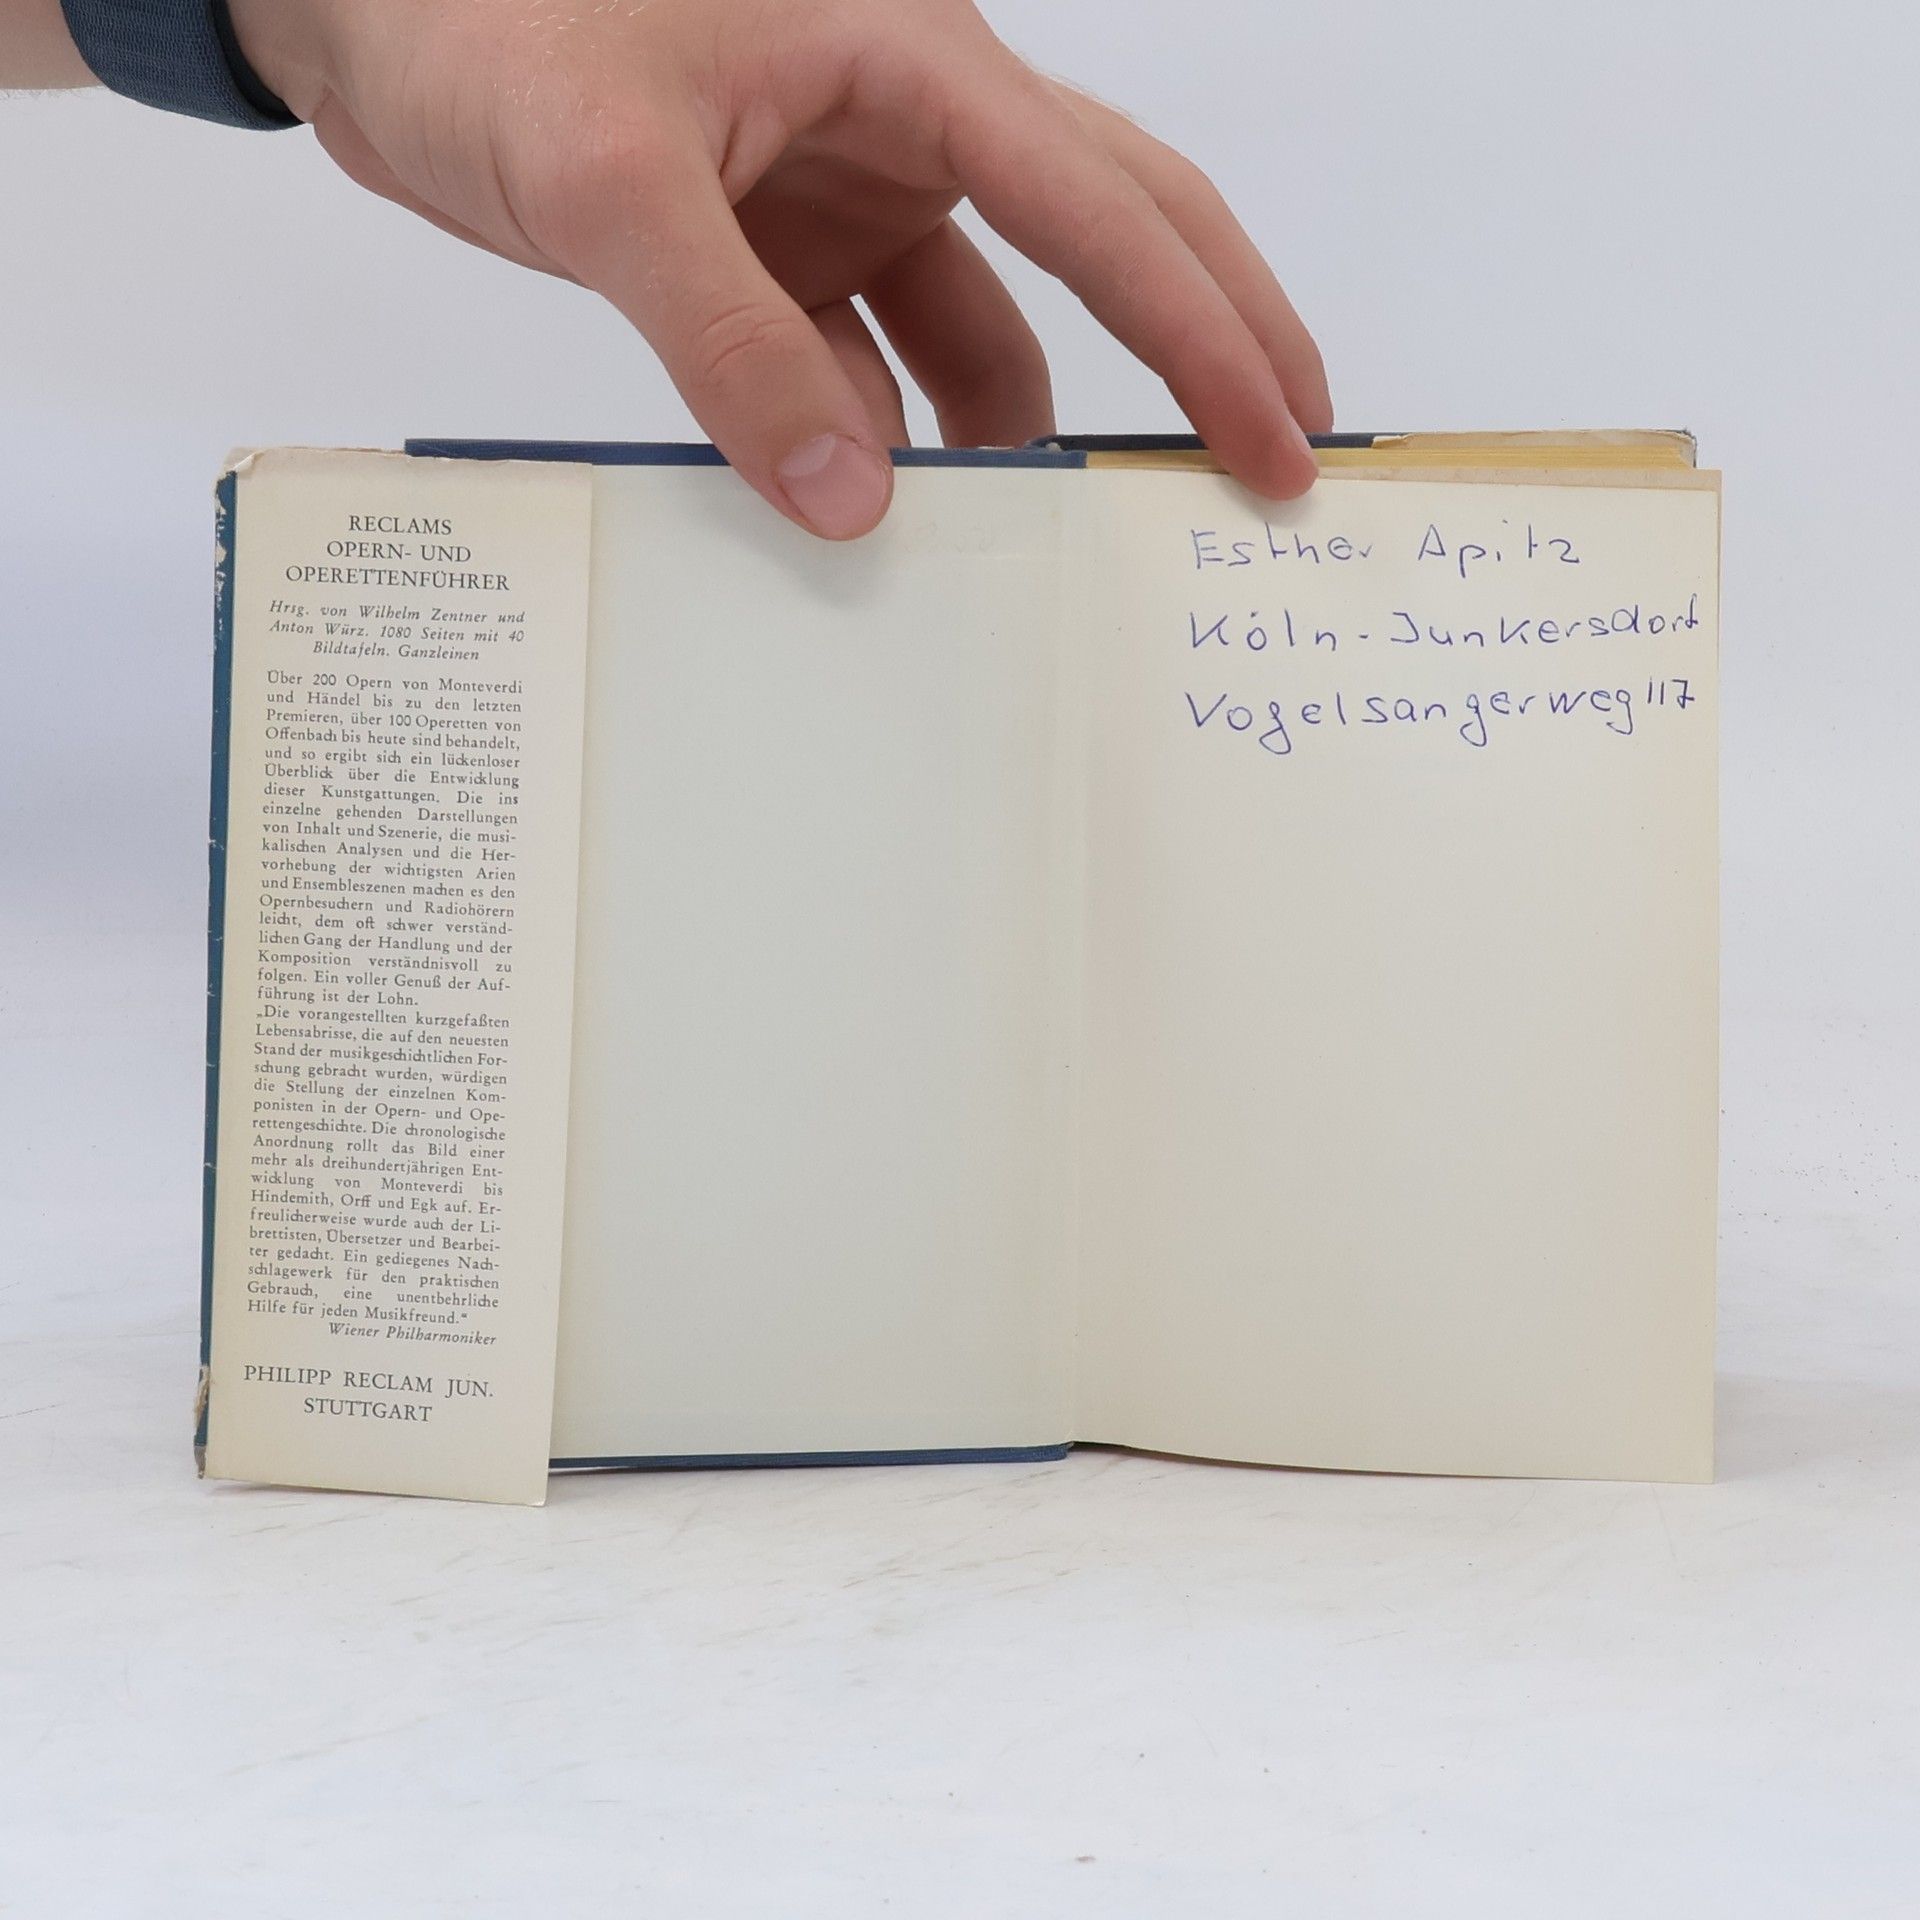 RECLAMS
OPERN- UND
OPERETTENFÜHRER
Hrsg. von Wilhelm Zentner und
Anton Würz. 1080 Seiten mit 40
Bildtafeln. Ganzleinen
Über 200 Opern von Monteverdi
und Händel bis zu den letzten
Premieren, über 100 Operetten von
Offenbach bis heute sind behandelt,
und so ergibt sich ein lückenloser
Überblick über die Entwicklung
dieser Kunstgattungen. Die ins
einzelne gehenden Darstellungen
von Inhalt und Szenerie, die musi-
kalischen Analysen und die Her-
vorhebung der wichtigsten Arien
und Ensembleszenen machen es den
Opernbesuchern und Radiohörern
leicht, dem oft schwer verständ-
lichen Gang der Handlung und der
Komposition verständnisvoll zu
folgen. Ein voller Genuß der Auf-
führung ist der Lohn.
„Die vorangestellten kurzgefaßten
Lebensabrisse, die auf den neuesten
Stand der musikgeschichtlichen For-
schung gebracht wurden, würdigen
die Stellung der einzelnen Kom-
ponisten in der Opern- und Ope-
rettengeschichte. Die chronologische
Anordnung rollt das Bild einer
mehr als dreihundertjährigen Ent-
wicklung von Monteverdi bis
Hindemith, Orff und Egk auf. Er-
freulicherweise wurde auch der Li-
brettisten, Übersetzer und Bearbei-
ter gedacht. Ein gediegenes Nach-
schlagewerk für den praktischen
Gebrauch, eine unentbehrliche
Hilfe für jeden Musikfreund.“
Wiener Philharmoniker
PHILIPP RECLAM JUN.
STUTTGART
Esther Apitz
Köln - Junkersdorf
Vogelsangerweg 117